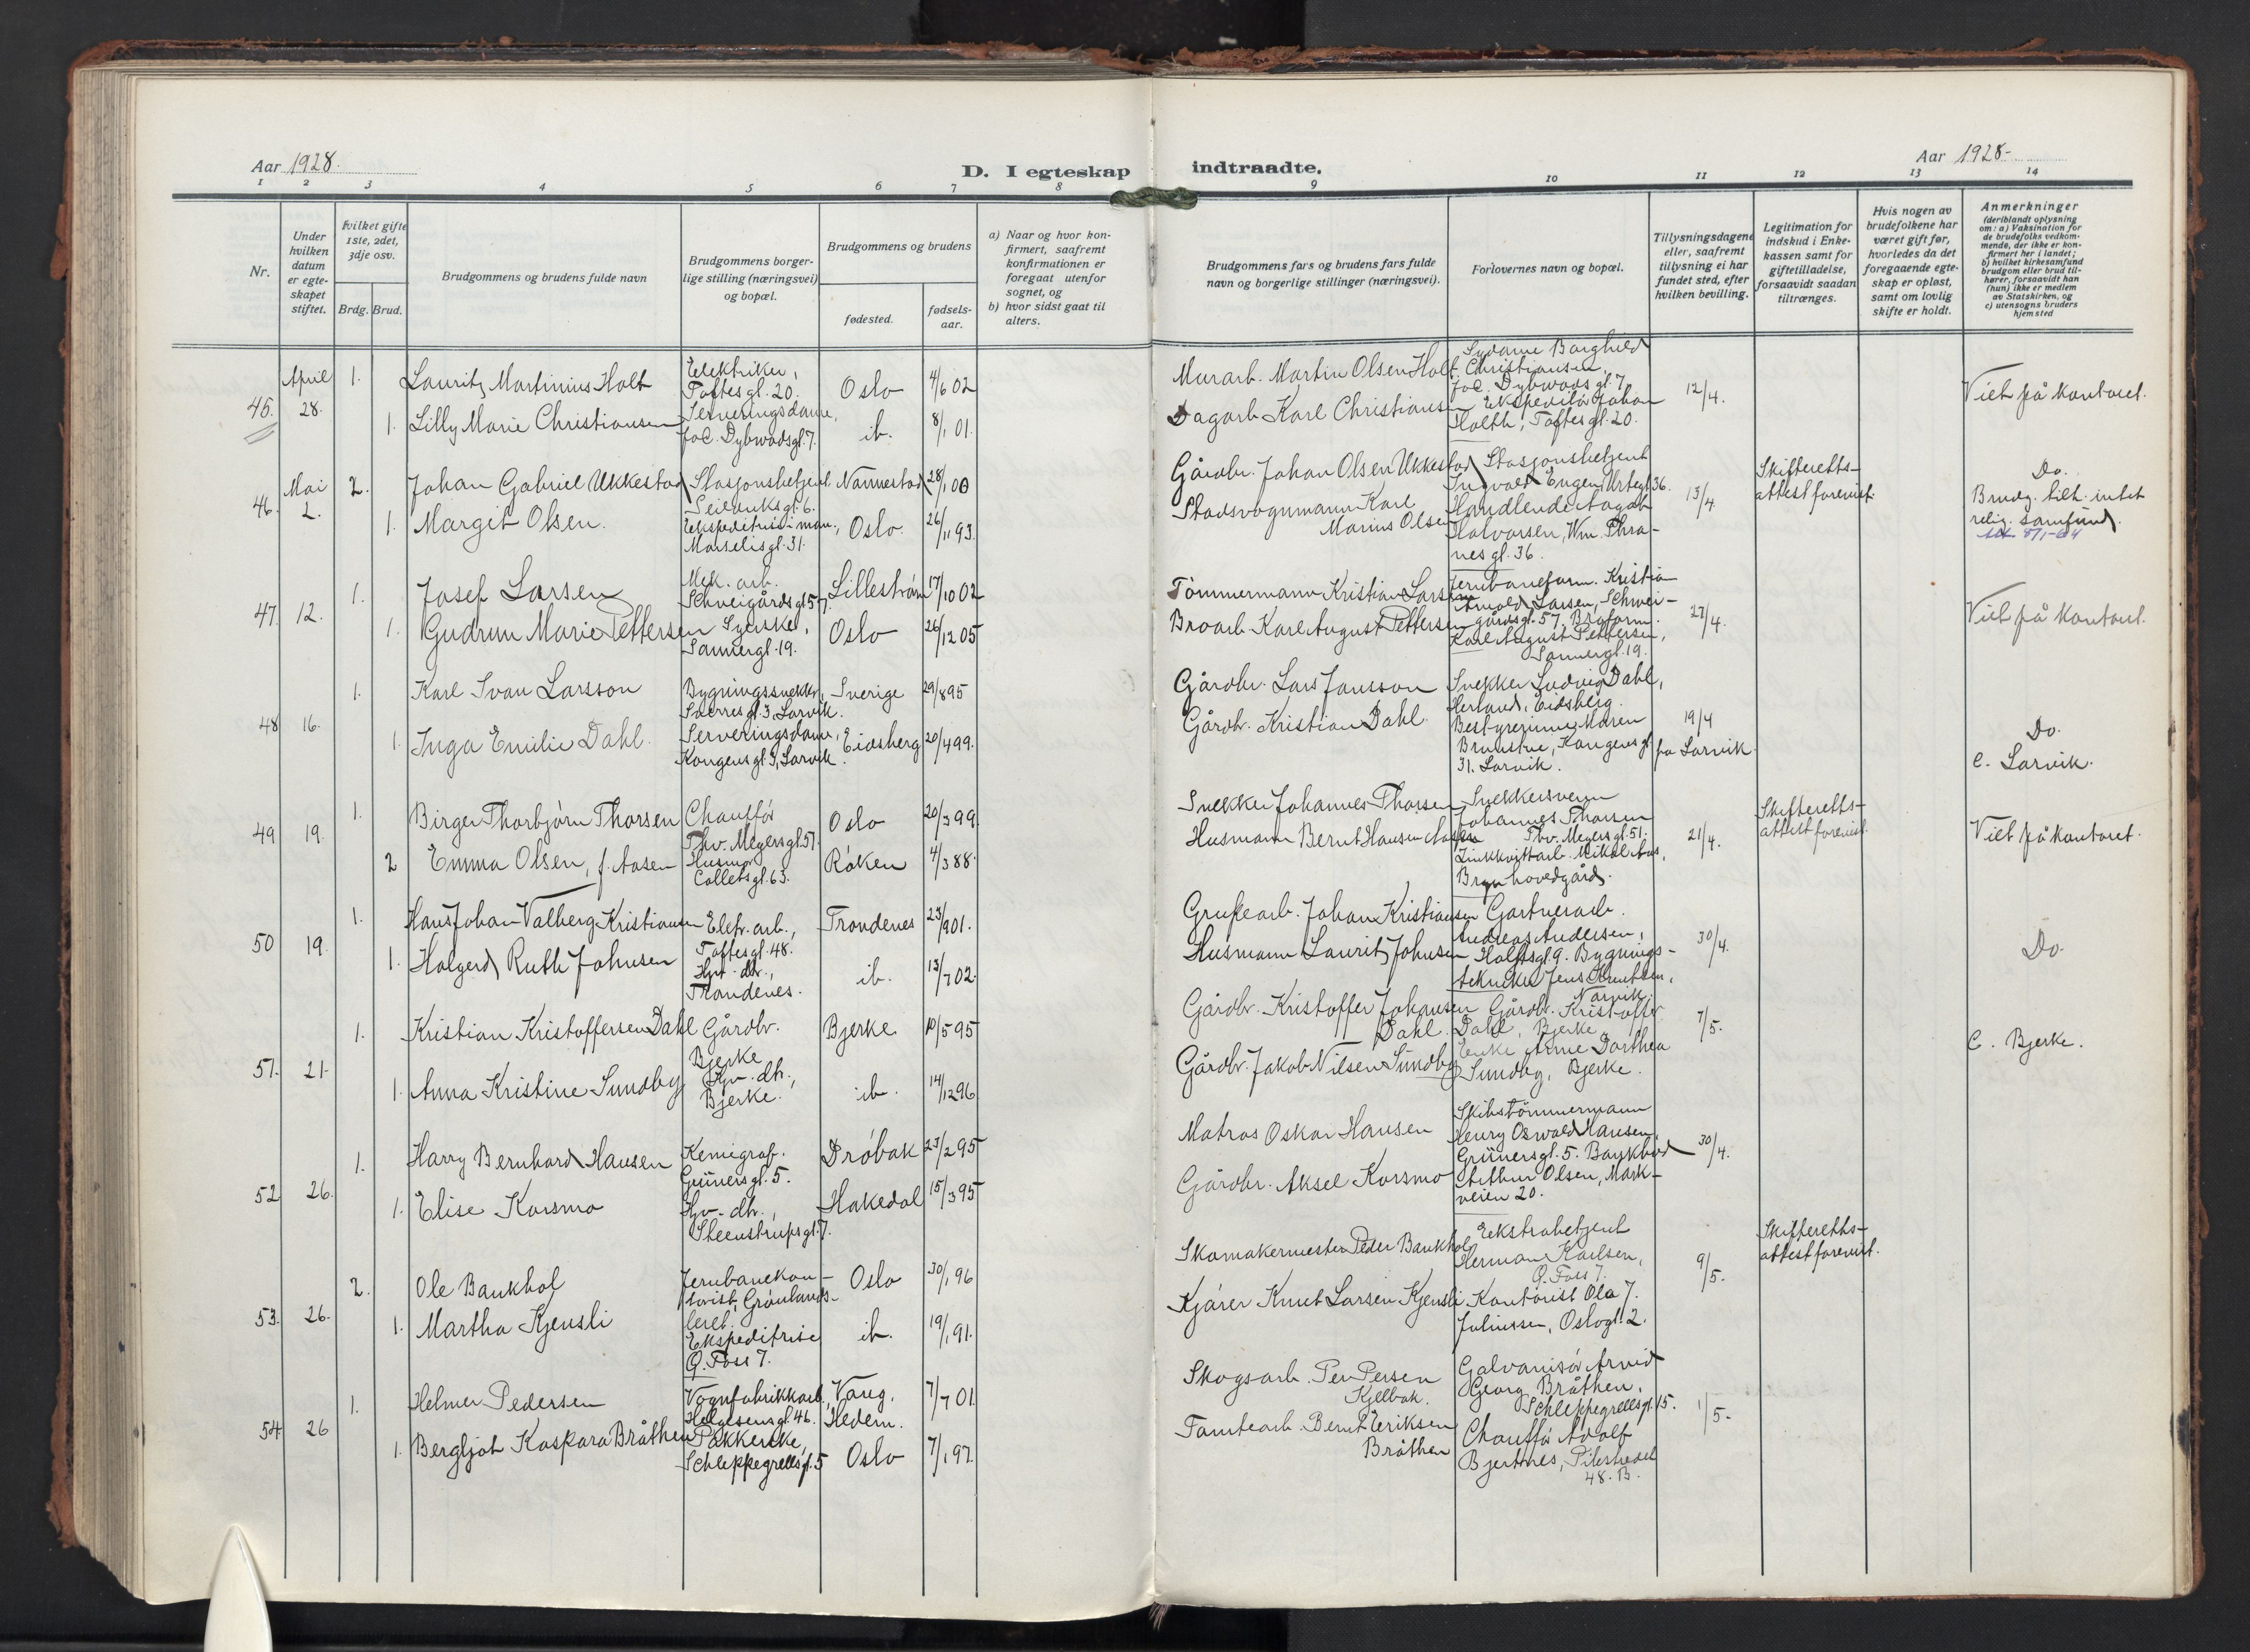 Aar 1928.
D. I egteskap indtraadte.
Aar 1928-
1 2 3 4 5 6 7 8 9 10 11 12 13 14
Nr.
Under hvilken datum er egteskapet stiftet.
hvilket gifte 1ste, 2det, 3dje osv.
Brdg. Brud.
Brudgommens og brudens fulde navn
Brudgommens borgerlige stilling (næringsvei) og bopæl.
Brudgommens og brudens
fødested.
fødselsaar.
a) Naar og hvor konfirmert, saafremt konfirmationen er foregaat utenfor sognet, og
b) hvor sidst gaat til alters.
Brudgommens fars og brudens fars fulde navn og borgerlige stillinger (næringsvei).
Forlovernes navn og bopæl.
Tillysningsdagene eller, saafremt tillysning ei har fundet sted, efter hvilken bevilling.
Legitimation for indskud i Enkekassen samt for giftetilladelse, forsaavidt saadan tiltrænges.
Hvis nogen av brudefolkene har været gift før, hvorledes da det foregaaende egteskap er opløst, samt om lovlig skifte er holdt.
Anmerkninger
(deriblandt oplysning om: a) Vaksination for de brudefolks vedkommende, der ikke er konfirmert her i landet; b) hvilket kirkesamfund brudgom eller brud tilhører, forsaavidt han (hun) ikke er medlem av Statskirken, og c) utensogns bruders hjemsted
45. April 28. 1. Lauritz Martinius Holt Elektriker, Toftesgl. 20. Oslo 4/6 02
Murarb. Martin Olsen Holt. Sydame Borghild Christiansen, Jac. Dybwadsgl. 7 12/4. Viet på kontoret.
1. Lilly Marie Christiansen Serveringsdame, Jac. Dybwadsgl. 7. ib. 8/1 01.
Dagarb. Karl Christiansen Ekspeditør Johan Holth, Toftesgl. 20.
46. Mai 2. 2. Johan Gabriel Ukkestad Stasjonsbetjent Seilduksgl. 6. Nannestad 28/1 00
Gårdbr. Johan Olsen Ukkestad Stasjonsbetjent Ingvald Engen, Urtegl. 36. 13/4. Skifterettsattest forevist. Do. Brudg. tilh. intet relig. samfund.
1. Margit Olsen. Ekspeditrise i man., Marselisgl. 31. Oslo. 26/11 93.
Stadsvognmann Karl Marius Olsen Handlende Aagot Halvorsen, Wm. Thranesgl. 36.
47. 12. 1. Josef Larsen Mek. arb. Schweigårdsgl. 57. Lillestrøm 17/10 02
Tömmermann Kristian Larsen Jernbaneform. Kristian Arnold Larsen, Schweigårdsgl. 57. 27/4. Viet på kontoret.
1. Gudrun Marie Pettersen Syerske, Sannergl. 19. Oslo 26/12 05
Broarb. Karl August Pettersen Broform. Karl August Pettersen, Sannergl. 19.
48 16. 1. Karl Ivan Larsson Bygningssnekker, Sverresgl. 3, Larvik. Sverige 29/8 95
Gårdbr. Lars Jansson Snekker Ludvig Dahl, Herland, Eidsberg. 19/4 fra Larvik. Do. c. Larvik.
1. Inga Emilie Dahl. Serveringsdame, Kongensgl. 3, Larvik. Eidsberg 20/4 99.
Gårdbr. Kristian Dahl. Bestyrerinne Maren Brunstue, Kongensgl. 31. Larvik.
49 19. 1. Birger Thorbjörn Thorsen Chaufför Thv. Meyersgl. 51. Oslo 20/3 99
Snekker Johannes Thorsen Snekkersvenn Johannes Thorsen Thv. Meyersgl. 51. 21/4. Skifterettsattest forevist. Viet på kontoret.
2 Emma Olsen, f. Aasen Husmor Colletsgl. 63. Röken 4/3 88.
Husmann Bernt Hansen Aasen Zinkkvittarb. Mikal Aas, Bryn hovedgård.
50 19. 1. Hans Johan Valberg Kristiansen Elektr. arb., Toftesgl. 48. Trondenes 23/9 01.
Grubearb. Johan Kristiansen Gartnerarb. Andreas Andersen, Holstsgl. 9. 30/4. Do.
1. Holgerd Ruth Johnsen Hjv. dtr., Trondenes. ib. 13/7 02.
Husmann Laurits Johnsen Bygningstekniker Jens Knutsen, Narvik.
51. 21. 1. Kristian Kristoffersen Dahl Gårdbr. Bjerke Bjerke 10/5 95
Gårdbr. Kristoffer Johansen Dahl. Gårdbr. Kristoffer Dahl, Bjerke. 7/5. C. Bjerke.
1. Anna Kristine Sundby Hjv. dtr., Bjerke. ib. 14/12 96
Gårdbr. Jakob Nilsen Sundby Enke Anne Dorthea Sundby, Bjerke.
52 26. 1. Harry Bernhard Hansen Kemigraf. Grünersgl. 5. Dröbak 23/2 95
Matros Oskar Hansen Skibstömmermann Henry Oswald Hansen, Grünersgl. 5. 30/4.
1. Elise Korsmo Hjv. dtr., Steenstrupsgl. 7. Hakedal 15/3 95
Gårdbr. Aksel Korsmo Bankbud Arthur Olsen, Markveien 20.
53. 26. 2. Ole Bankhol Jernbanekontorist, Grönlandsleret. Oslo 30/1 96
Skomakermester Peder Bankhol Ekstrabetjent Herman Karlsen, Q. Foss 7. 9/5. Skifterettsattest forevist.
1. Martha Kjensli Ekspeditrise Q. Foss 7. ib. 19/1 91.
Kjörer Knut Larsen Kjensli Kontorist Ola J. Juliussen, Oslogl. 2.
54 26 1. Helmer Pedersen Vognfabrikkarb. Helgesensgl. 46. Vang, Hedem. 7/7 01
Skogsarb. Per Persen Kjelbak. Galvanisör Arvid Georg Bråthen, Schleppegrellsgl. 15. 1/5.
1. Bergljot Kaspara Bråthen Pakkerske, Schleppegrellsgl. 5 Oslo 7/1 97.
Tomtearb. Bernt Eriksen Bråthen Chaufför Adolf Bjertnes, Pilestredet 48. B.